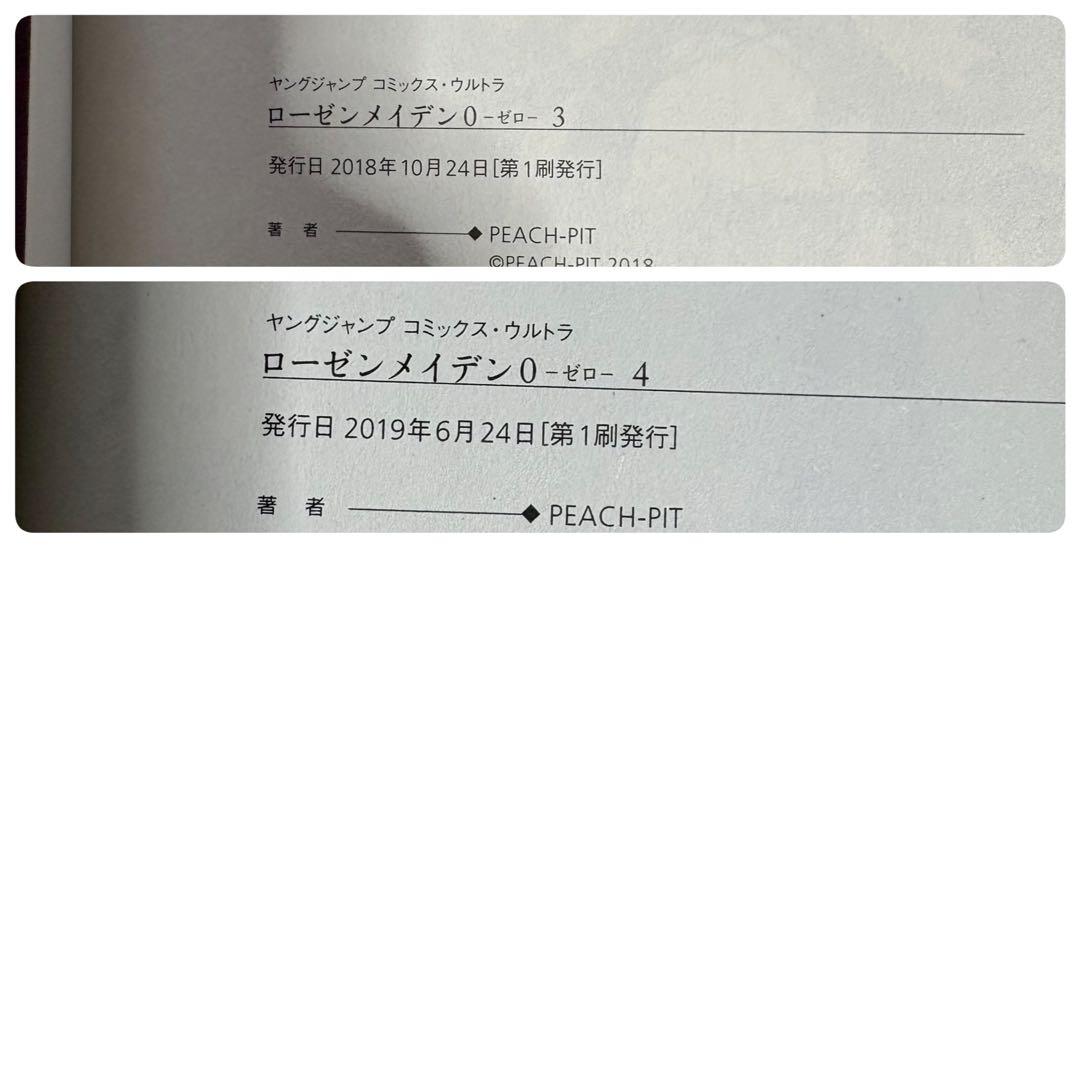 ヤングジャンプ コミックス・ウルトラ
ローゼンメイデン0 −ゼロ− 3
発行日 2018年10月24日[第1刷発行]
著 者 ◆ PEACH-PIT
©PEACH-PIT 2018
ヤングジャンプ コミックス・ウルトラ
ローゼンメイデン0 −ゼロ− 4
発行日 2019年6月24日[第1刷発行]
著 者 ◆ PEACH-PIT